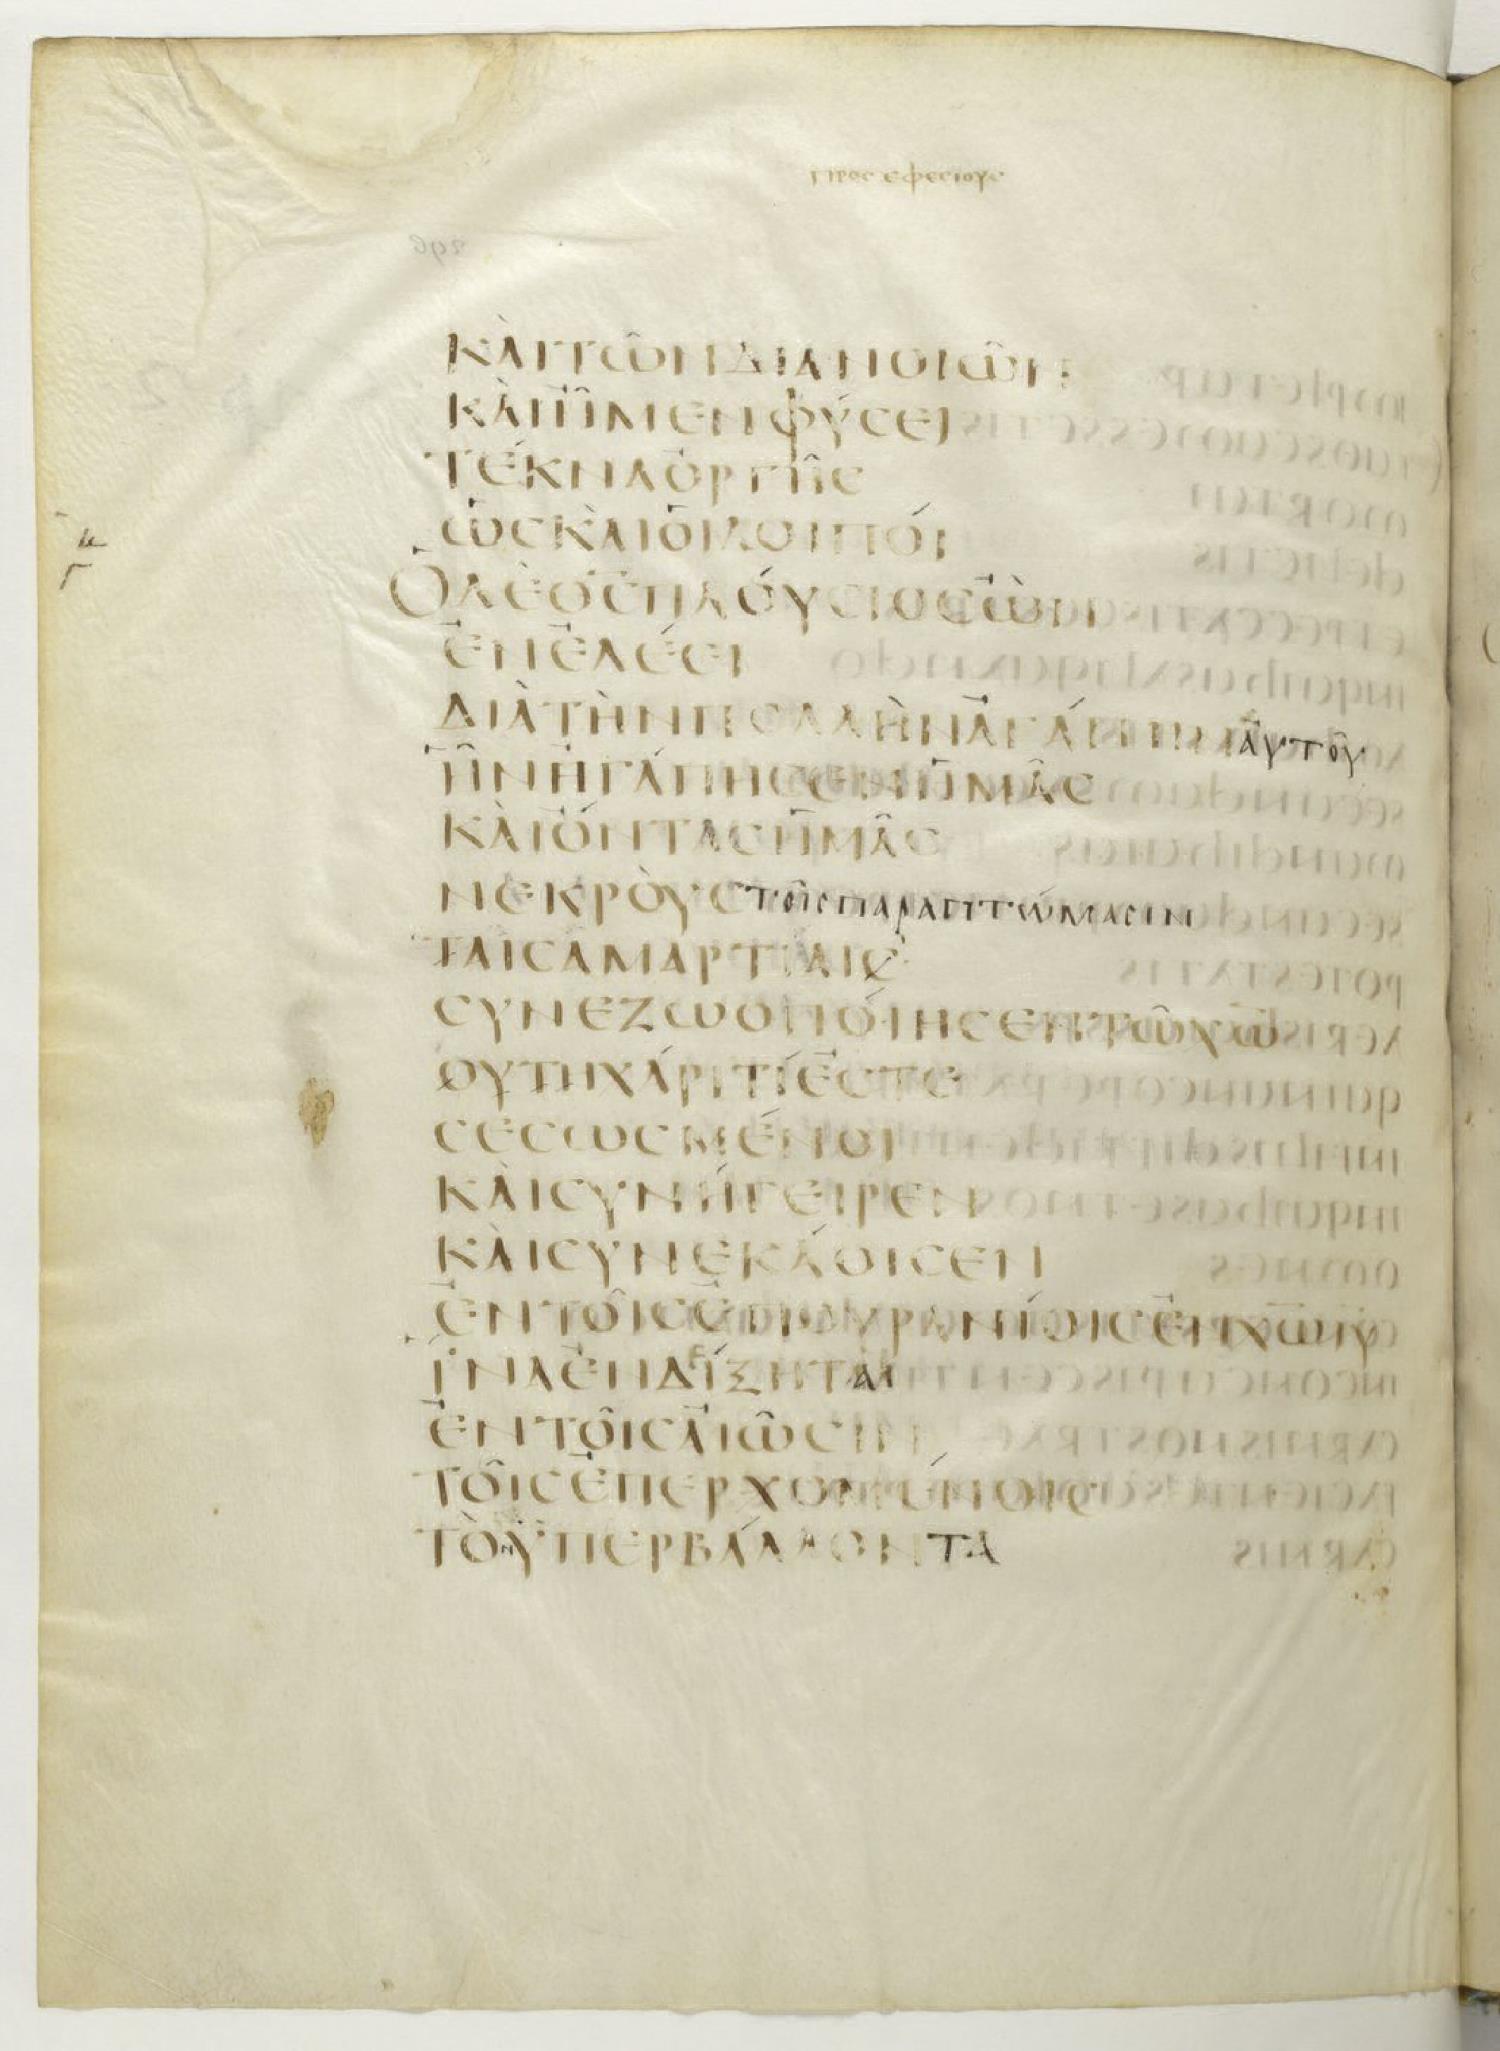 προς εφεσιους
ΚΑῚΤΩ͂ΝΔΙΑΝΟΙΩ͂Ν
ΚΑῚἮΜΕΝΦΎΣΕΙ
ΤΈΚΝΑὈΡΓΗ͂Σ
ὩΣΚΑῚὉΙΛΟΙΠΌΙ
ὉΔῈΘ̅Σ̅ΠΛΌΥΣΙΟΣὬΝ
ἘΝἘΛΈΕΙ
ΔΙᾺΤῊΝΠΟΛΛῊΝἈΓΆΠΗΝἈΥΤΟΥ͂
ἫΝἨΓΆΠΗΣΕΝἩΜΑ͂Σ
ΚΑῚὌΝΤΑΣἩΜΑ͂Σ
ΝΕΚΡΟῪΣΤΟΙ͂ΣΠΑΡΑΠΤΏΜΑΣΙΝ
ΤΑΙΣΑΜΑΡΤΊΑΙΣ
ΣΥΝΕΖΩΟΠΌΙΗΣΕΝΤΩ͂Χ̅Ω̅
ΟΥΤΗΧΆΡΙΤΊἘΣΤΕ
ΣΕΣΩΣΜΈΝΟΙ
ΚΑῚΣΥΝΉΓΕΙΡΕΝ
ΚΑῚΣΥΝΕΚΆΘΙΣΕΝ
ἘΝΤΟΙ͂ΣἘΠΟΥΡΑΝΊΟΙΣἘΝΧ̅Ω̅Ι̅Υ̅
ἽΝΑἘΝΔΕΊΞΗΤΑΙ
ἘΝΤΟΙ͂ΣἈΙΩ͂ΣΙΝ
ΤΟΙ͂ΣἘΠΕΡΧΟΜΈΝΟΙΣ
ΤῸΝὙΠΕΡΒΆΛΛΟΝΤΑ